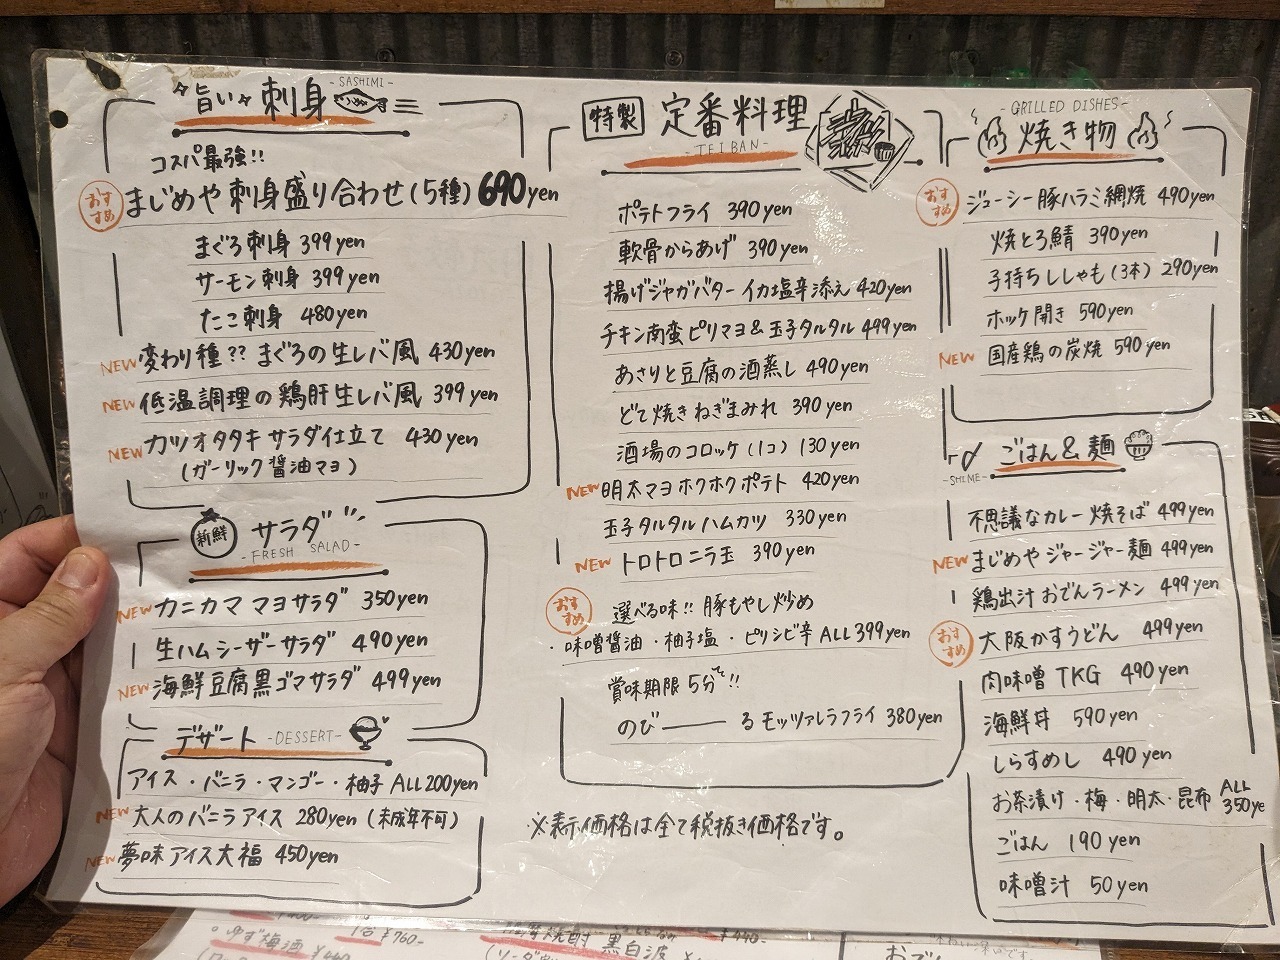 旨い 刺身
-SASHIMI-
コスパ最強!!
おすすめ まじめや刺身盛り合わせ(5種) 690yen
まぐろ刺身 399yen
サーモン刺身 399yen
たこ刺身 480yen
NEW 変わり種?? まぐろの生レバ風 430yen
NEW 低温調理の鶏肝生レバ風 399yen
NEW カツオタタキサラダ仕立て 430yen
(ガーリック醤油マヨ)
新鮮 サラダ
-FRESH SALAD-
NEW カニカママヨサラダ 350yen
生ハムシーザーサラダ 490yen
NEW 海鮮豆腐黒ゴマサラダ 499yen
デザート -DESSERT-
アイス・バニラ・マンゴー・柚子 ALL200yen
NEW 大人のバニラアイス 280yen (未成年不可)
NEW 夢味アイス大福 450yen
特製 定番料理
-TEIBAN-
ポテトフライ 390yen
軟骨からあげ 390yen
揚げジャガバター イカ塩辛添え 420yen
チキン南蛮ピリマヨ&玉子タルタル 499yen
あさりと豆腐の酒蒸し 490yen
どて焼きねぎまみれ 390yen
酒場のコロッケ(1コ) 130yen
NEW 明太マヨホクホクポテト 420yen
玉子タルタルハムカツ 330yen
NEW トロトロニラ玉 390yen
おすすめ 選べる味!! 豚もやし炒め
・味噌醤油・柚子塩・ピリシビ辛 ALL399yen
賞味期限5分で!!
のび――る モッツァレラフライ 380yen
※表示価格は全て税抜き価格です。
-GRILLED DISHES-
焼き物
おすすめ ジューシー豚ハラミ網焼 490yen
焼とろ鯖 390yen
子持ちししゃも(3本) 290yen
ホッケ開き 590yen
NEW 国産鶏の炭焼 590yen
〆 ごはん&麺
-SHIME-
不思議なカレー焼そば 499yen
NEW まじめやジャージャー麺 499yen
鶏出汁おでんラーメン 499yen
おすすめ 大阪かすうどん 499yen
肉味噌TKG 490yen
海鮮丼 590yen
しらすめし 490yen
お茶漬け・梅・明太・昆布 ALL 350ye
ごはん 190yen
味噌汁 50yen
ゆず梅酒
¥760-
黒白波
¥440-
おでん